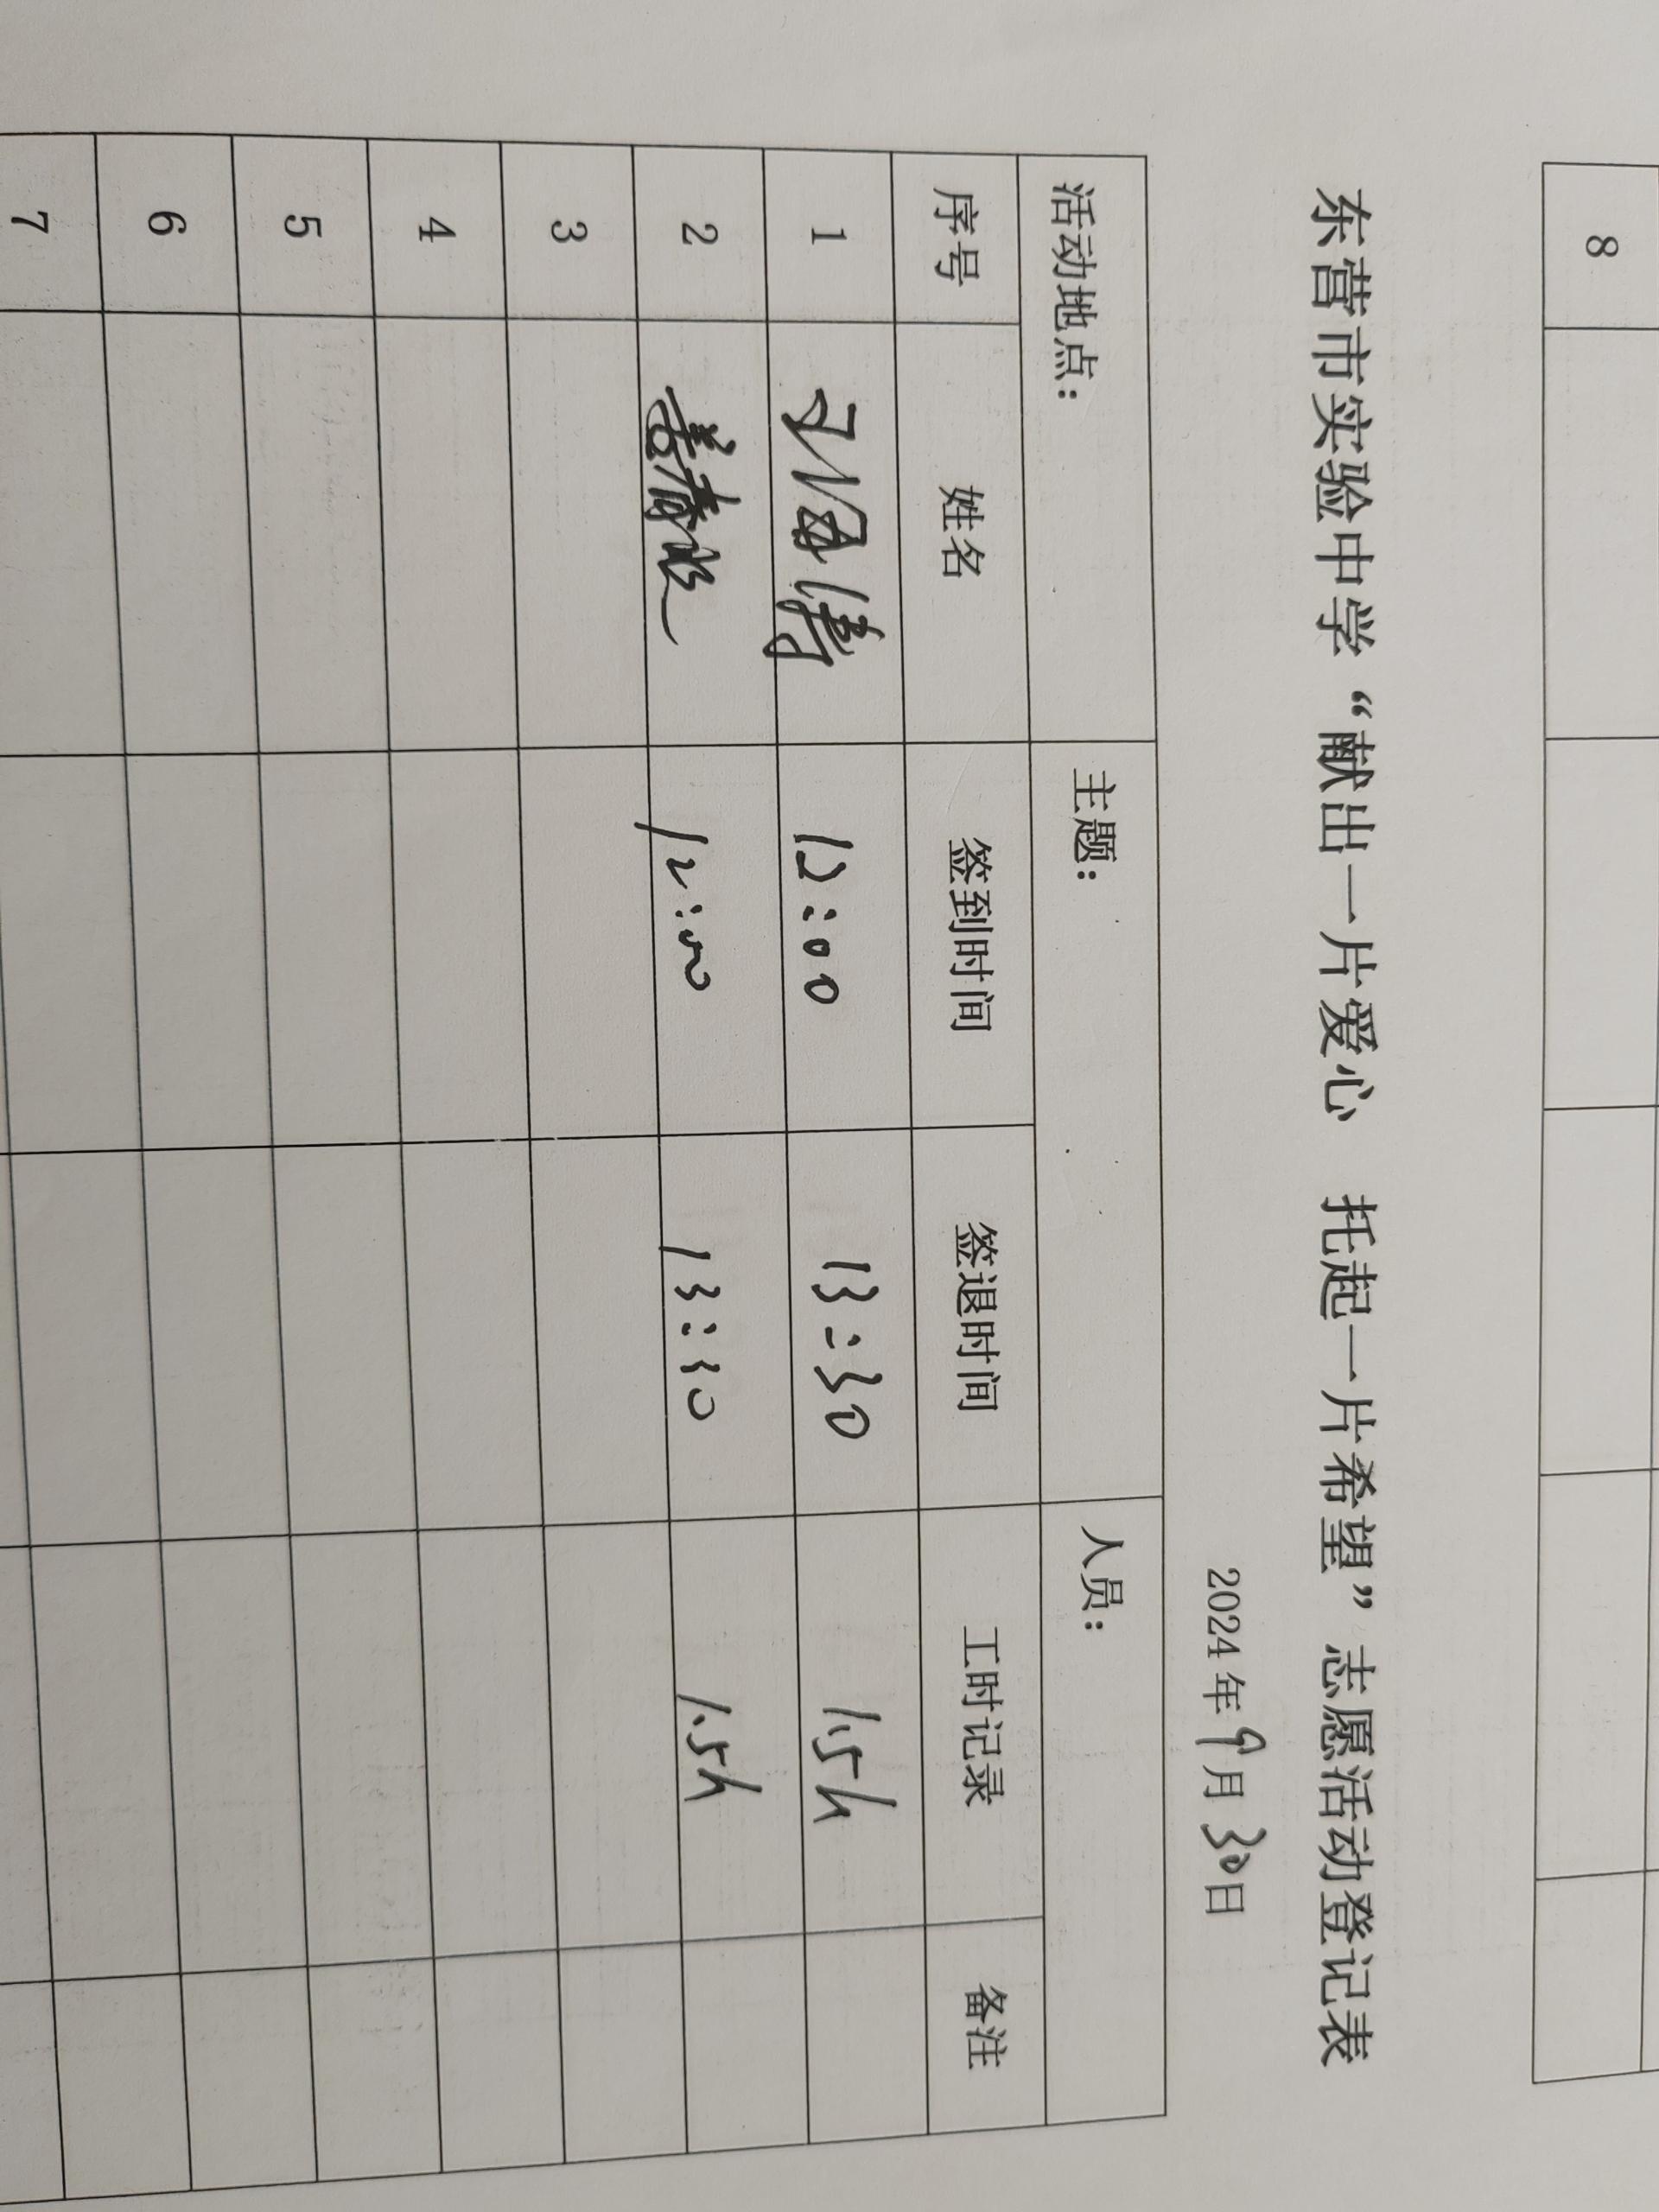 8
东营市实验中学“献出一片爱心 托起一片希望”志愿活动登记表
2024年9月30日
活动地点: 主题: 人员:
序号 姓名 签到时间 签退时间 工时记录 备注
1 12:00 13:30 1.5h
2 12:00 13:30 1.5h
3
4
5
6
7